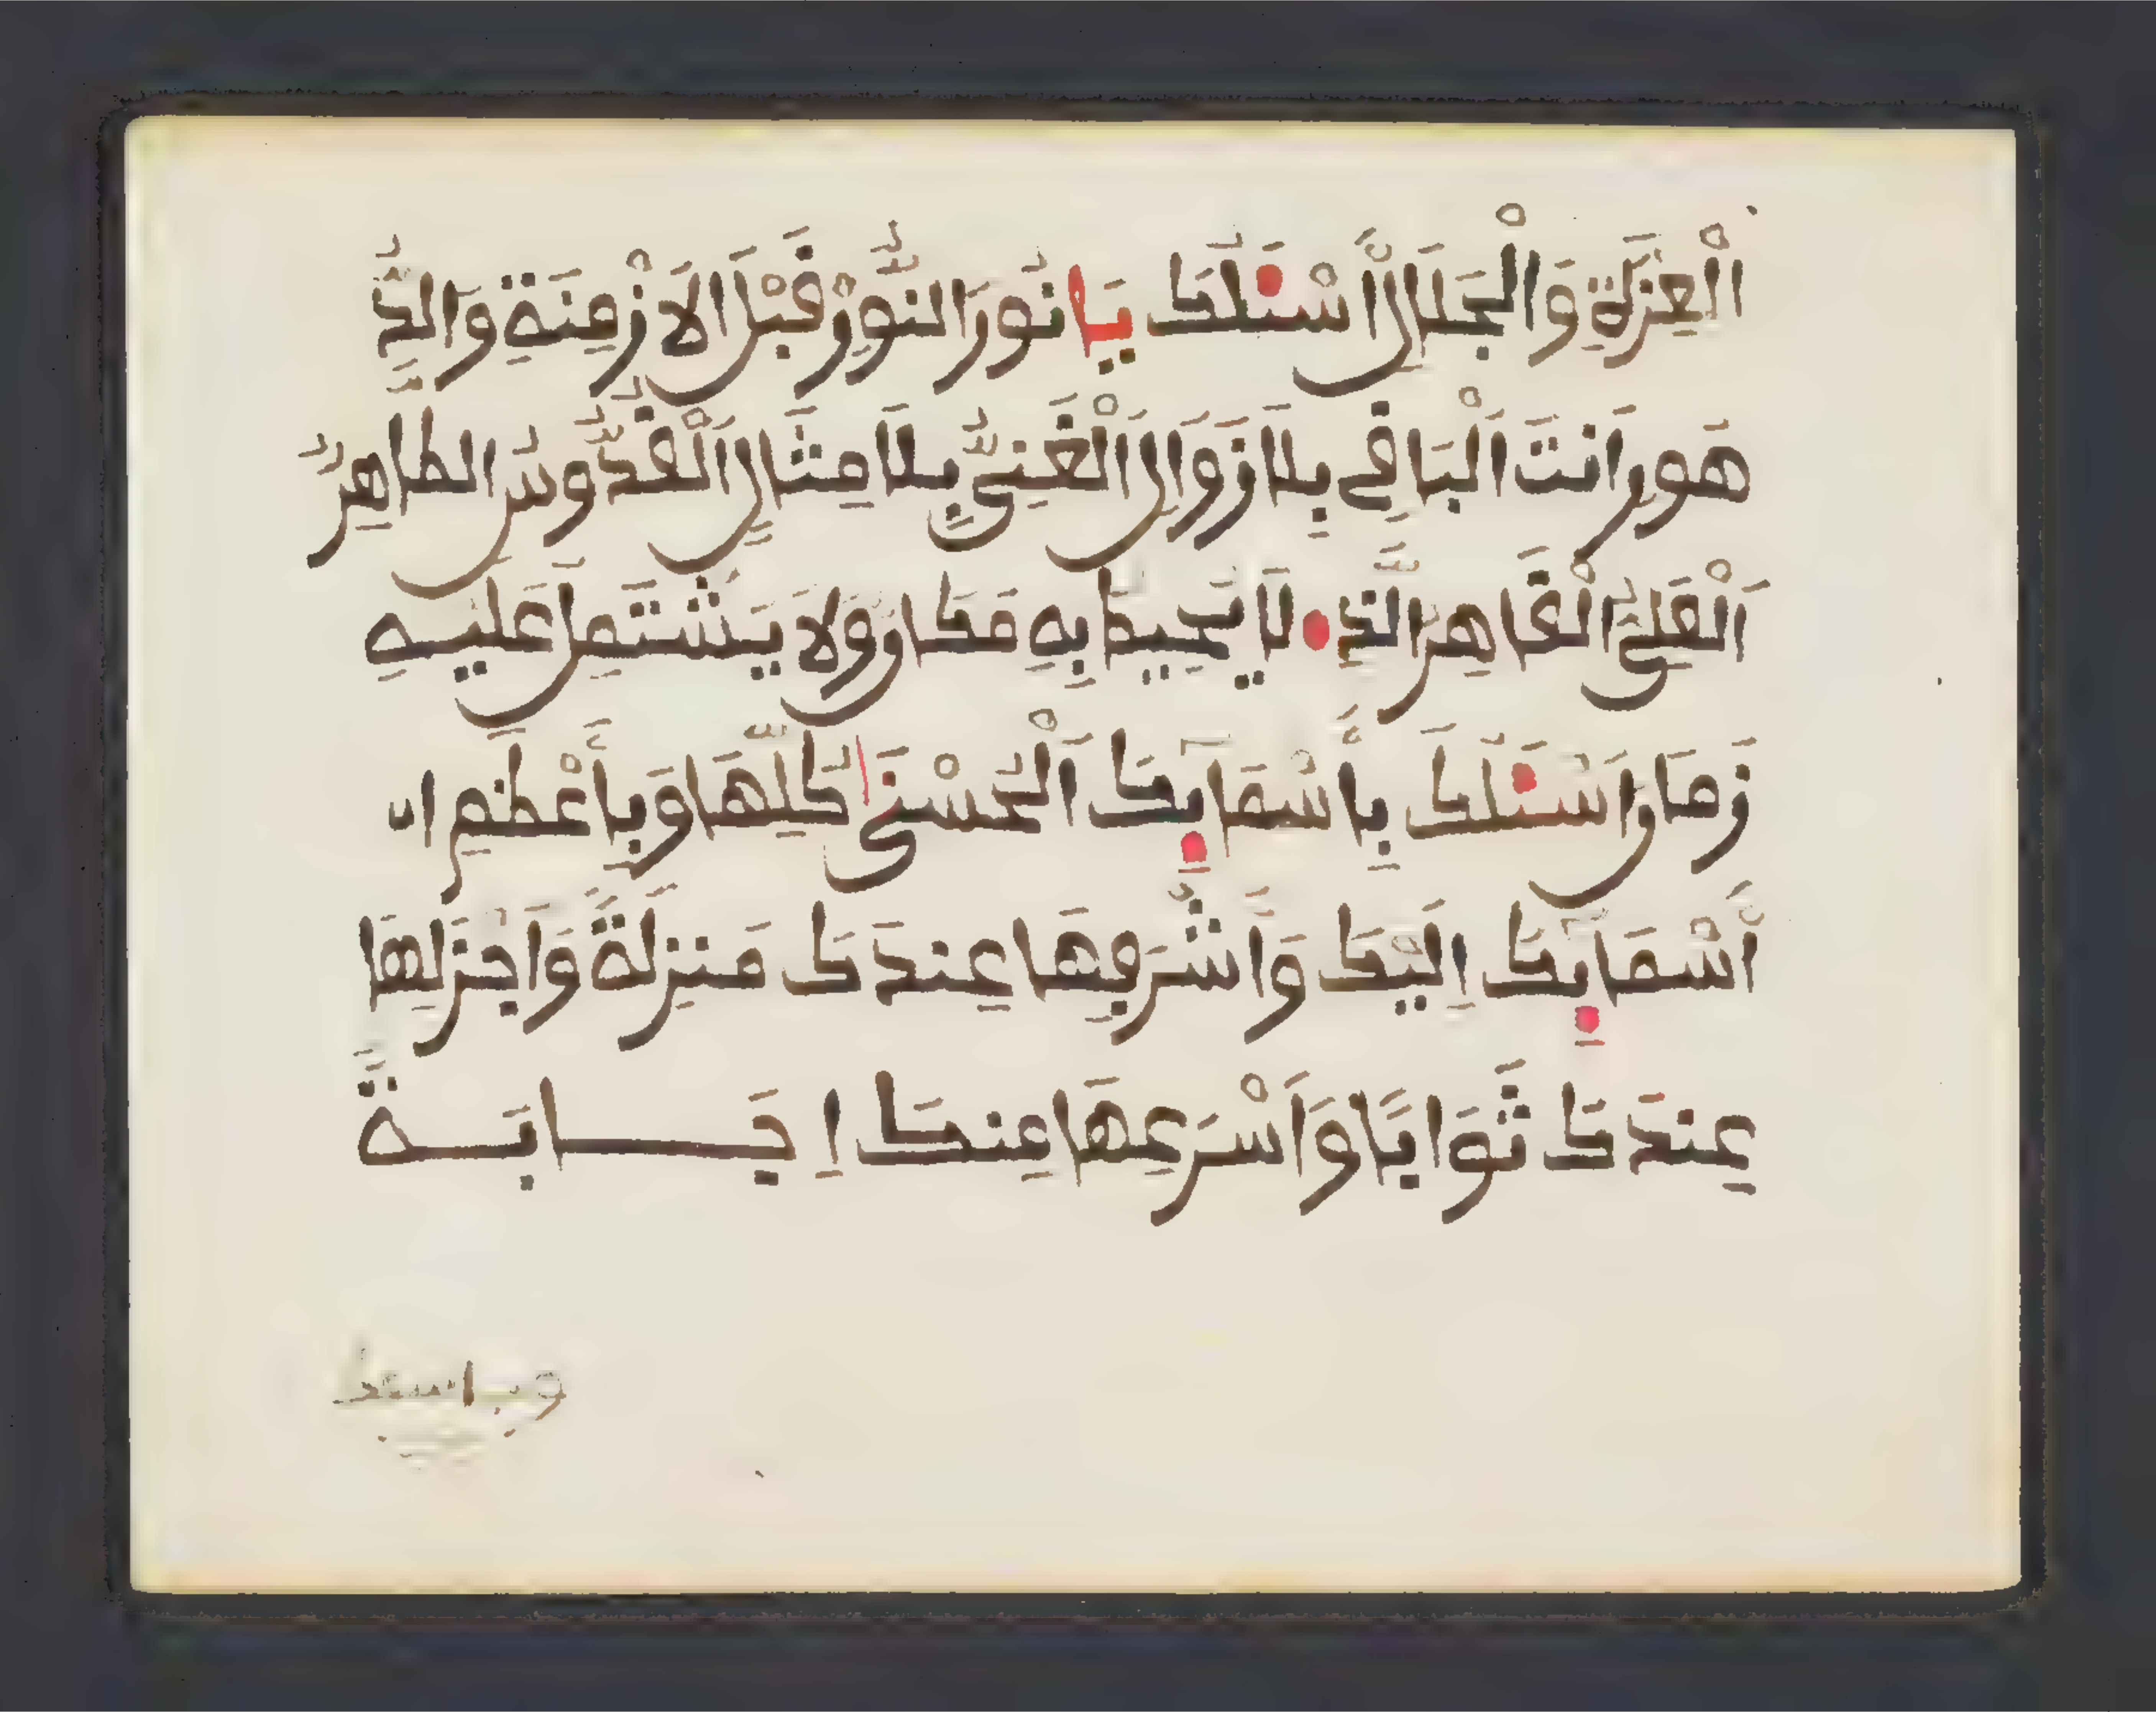 الْعِزَّةِ وَالْجَلَالِ أَسْـَٔلُكَ يَا نُورَ النُّورِ قَبْلَ الَازْمِنَةِ وَالدُّ
هُورِ اَنتَ اَلْبَاقِي بِلَا زَوَالٍ اَلْغَنِيُّ بِلَا مِثَالٍ اَلْقُدُّوسُ الطَّاهِرُ
اَلْعَلِيُّ الْقَاهِرُ الَّذِي لَا يُحِيطُ بِهِ مَكَانٌ وَلَا يَشْتَمِلُ عَلَيْهِ
زَمَانٌ اَسْـَٔلُكَ بِأَسْمَآئِكَ اَلْحُسْنَىٰ كُلِّهَا وَبِأَعْظَمِ
أَسْمَآئِكَ اِلَيْكَ وَأَشْرَفِهَا عِندَكَ مَنزِلَةً وَاَجْزَلِهَا
عِندَكَ ثَوَابًا وَأَسْرَعِهَا عِندَكَ اِجَابَةً
وباسمك